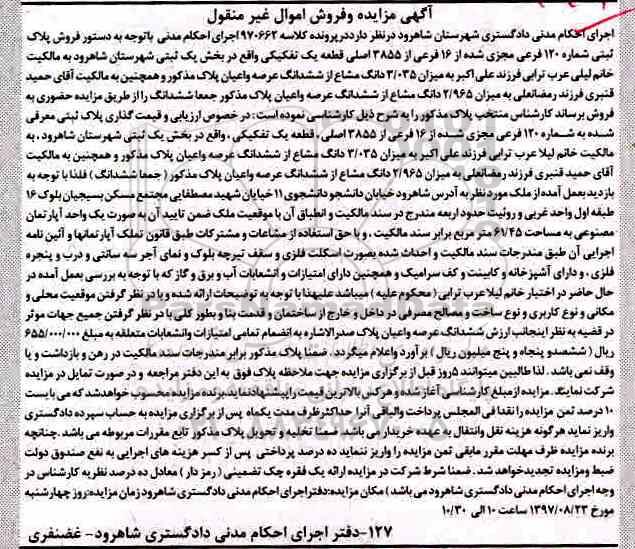 آگهی مزایده وفروش اموال غیر منقول
اجرای احکام مدنی دادگستری شهرستان شاهرود درنظر دارددرپرونده کلاسه ۹۷۰۶۶۲اجرای احکام مدنی باتوجه به دستور فروش پلاک
ثبتی شماره ۱۲۰ فرعی مجزی شده از ۱۶ فرعی از ۳۸۵۵ اصلی قطعه یک تفکیکی واقع در بخش یک ثبتی شهرستان شاهرود به مالکیت
خانم لیلی عرب ترابی فرزند علی اکبر به میزان ۳/۰۳۵ دانگ مشاع از ششدانگ عرصه واعیان پلاک مذکور وهمچنین به مالکیت آقای حمید
قنبری فرزند رمضانعلی به میزان ۲/۹۶۵ دانگ مشاع از ششدانگ عرصه واعیان پلاک مذکور جمعا ششدانگ را از طریق مزایده حضوری به
فروش برساند کارشناس منتخب پلاک مذکور را به شرح ذیل کارشناسی نموده است: در خصوص ارزیابی و قیمت گذاری پلاک ثبتی معرفی
شده به شماره ۱۲۰ فرعی مجزی شده از ۱۶ فرعی از ۳۸۵۵ اصلی ، قطعه یک تفکیکی ، واقع در بخش یک ثبتی شهرستان شاهرود ، به
مالکیت خانم لیلا عرب ترابی فرزند علی اکبر به میزان ۳/۰۳۵ دانگ مشاع از ششدانگ عرصه واعیان پلاک مذکور و همچنین به مالکیت
آقای حمید قنبری فرزند رمضانعلی به میزان ۲/۹۶۵ دانگ مشاع از ششدانگ عرصه واعیان پلاک مذکور ( جمعا ششدانگ ) فلذا با توجه به
بازدید بعمل آمده از ملک مورد نظر به آدرس شاهرود خیابان دانشجو دانشجوی ۱۱ خیابان شهید مصطفایی مجتمع مسکن بسیجیان بلوک ۱۶
طبقه اول واحد غربی و روئیت حدود اربعه مندرج در سند مالکیت و انطباق آن با موقعیت ملک ضمن تایید آن به صورت یک واحد آپارتمان
مصنوعی به مساحت ۶۱/۴۵ متر مربع برابر سند مالکیت ، و با حق استفاده از مشاعات و مشترکات طبق قانون تملک آپارتمانها و آئین نامه
اجرایی آن طبق مندرجات سند مالکیت و احداث شده بصورت اسکلت فلزی و سقف تیرچه بلوک و نمای آجر سه سانتی و درب و پنجره
فلزی ، و دارای آشپزخانه و کابینت و کف سرامیک و همچنین دارای امتیازات و انشعابات آب و برق و گاز که با توجه به بررسی بعمل آمده در
حال حاضر در اختیار خانم لیلا عرب ترابی (محکوم علیه ) میباشد علیهذا با توجه به توضیحات ارائه شده و با در نظر گرفتن موقعیت محلی و
مکانی و نوع کاربری و نوع ساخت و مصالح مصرفی در داخل و خارج از ساختمان و قدمت بنا و بطور کلی با در نظر گرفتن جمیع جهات موثر
در قضیه به نظر اینجانب ارزش ششدانگ عرصه واعیان پلاک صدرالاشاره به انضمام تمامی امتیازات وانشعابات متعلقه به مبلغ ۶۵۵/۰۰۰/۰۰۰
ریال ( ششصدو پنجاه و پنج میلیون ریال ) برآورد واعلام میگردد . ضمنا پلاک مذکور برابر مندرجات سند مالکیت در رهن و بازداشت و یا
وقف نمی باشد . لذا طالبین میتوانند ۵روز قبل از برگزاری مزایده جهت ملاحظه پلاک فوق به این دفتر مراجعه و در صورت تمایل در مزایده
شرکت نمایند. مزایده ازمبلغ کارشناسی آغاز شده و هرکس بالاترین قیمت را پیشنهادنماید برنده مزایده محسوب خواهدشد که می بایست
۱۰ درصد ثمن مزایده را نقدا فی المجلس پرداخت والباقی آنرا حداکثرظرف مدت یکماه پس از برگزاری مزایده به حساب سپرده دادگستری
واریز نماید هرگونه هزینه نقل وانتقال به عهده خریدار می باشد. ضمنا تخلیه و تحویل پلاک مذکور تابع مقررات مربوطه می باشد .چنانچه
برنده مزایده ظرف مهلت مقرر مابقی ثمن مزایده را واریز ننماید ده درصد پرداختی پس از کسر هزینه های اجرایی به نفع صندوق دولت
ضبط ومزایده تجدیدخواهد شد . ضمنا شرط شرکت در مزایده ارائه یک فقره چک تضمینی ( رمز دار ) معادل ده درصد نظریه کارشناس در
وجه اجرای احکام مدنی دادگستری شاهرود می باشد ) مکان مزایده:دفتراجرای احکام مدنی دادگستری شاهرود زمان مزایده:روز چهارشنبه
مورخ ۱۳۹۷/۰۸/۲۳ ساعت ۱۰ الی ۱۰/۳۰
۱۲۷-دفتر اجرای احکام مدنی دادگستری شاهرود- غضنفری